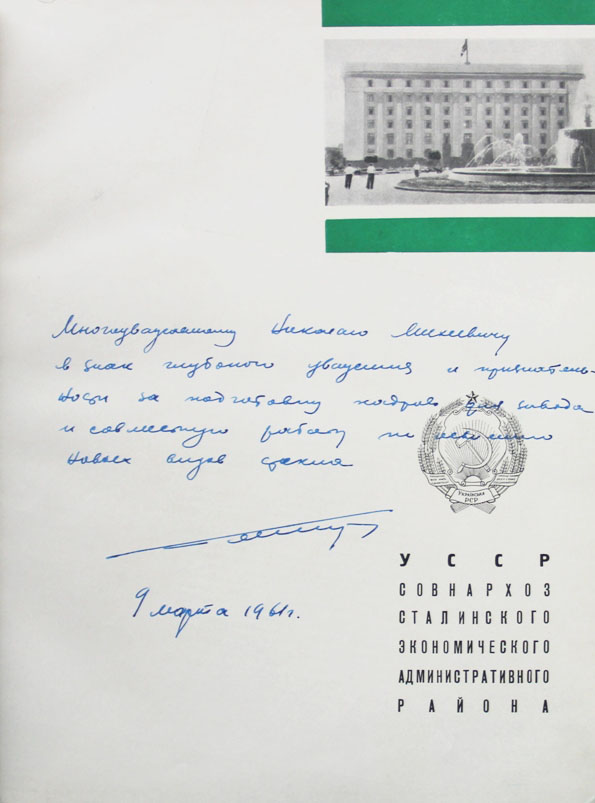 Многоуважаемому Николаю
в знак глубокого уважения и признатель-
ности за подготовку кадров для завода
и совместную работу по освоению
новых видов стекла
9 марта 1961г.
УКРАЇНСЬКА
РСР
УССР
СОВНАРХОЗ
СТАЛИНСКОГО
ЭКОНОМИЧЕСКОГО
АДМИНИСТРАТИВНОГО
РАЙОНА